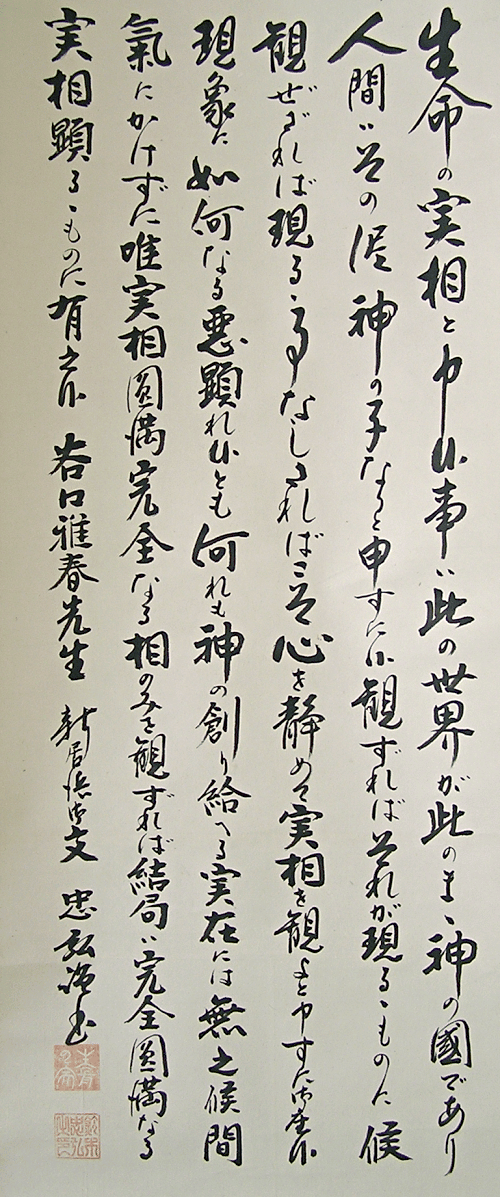 生命の実相と申候事ハ此の世界が此のまゝ神の國であり
人間ハその儘神の子なりと申すに候観ずればそれが現るゝものに候
観ぜざれば現るゝ事なしされば心を静めて実相を観よと申すに御座候
現象に如何なる悪顕れ候とも何れも神の創り給へる実在には無之候間
氣にかけずに唯実相圓満完全なる相のみを観ずれば結局ハ完全圓満なる
実相顕るゝものに有之候 谷口雅春先生 新居浜 文 忠弘 書